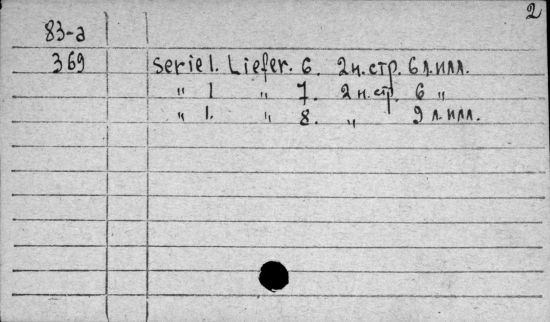 2
83-а
369 Serie 1. Liefer. 6. 2 н. стр. 6 л. илл.
" 1 " 7. 2 н. стр. 6 "
" 1. " 8. " 9 л. илл.